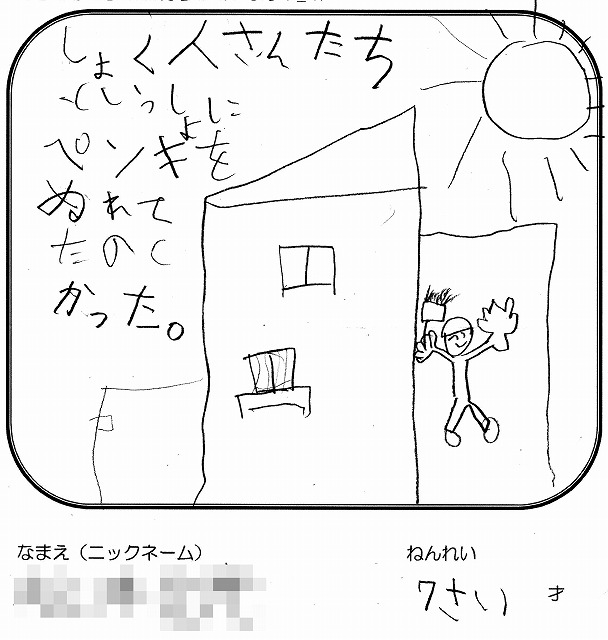 しょく人さんたち
といっしょに
ペンギを
ぬれて
たのし
かった。
なまえ（ニックネーム）
ねんれい
7さい 才